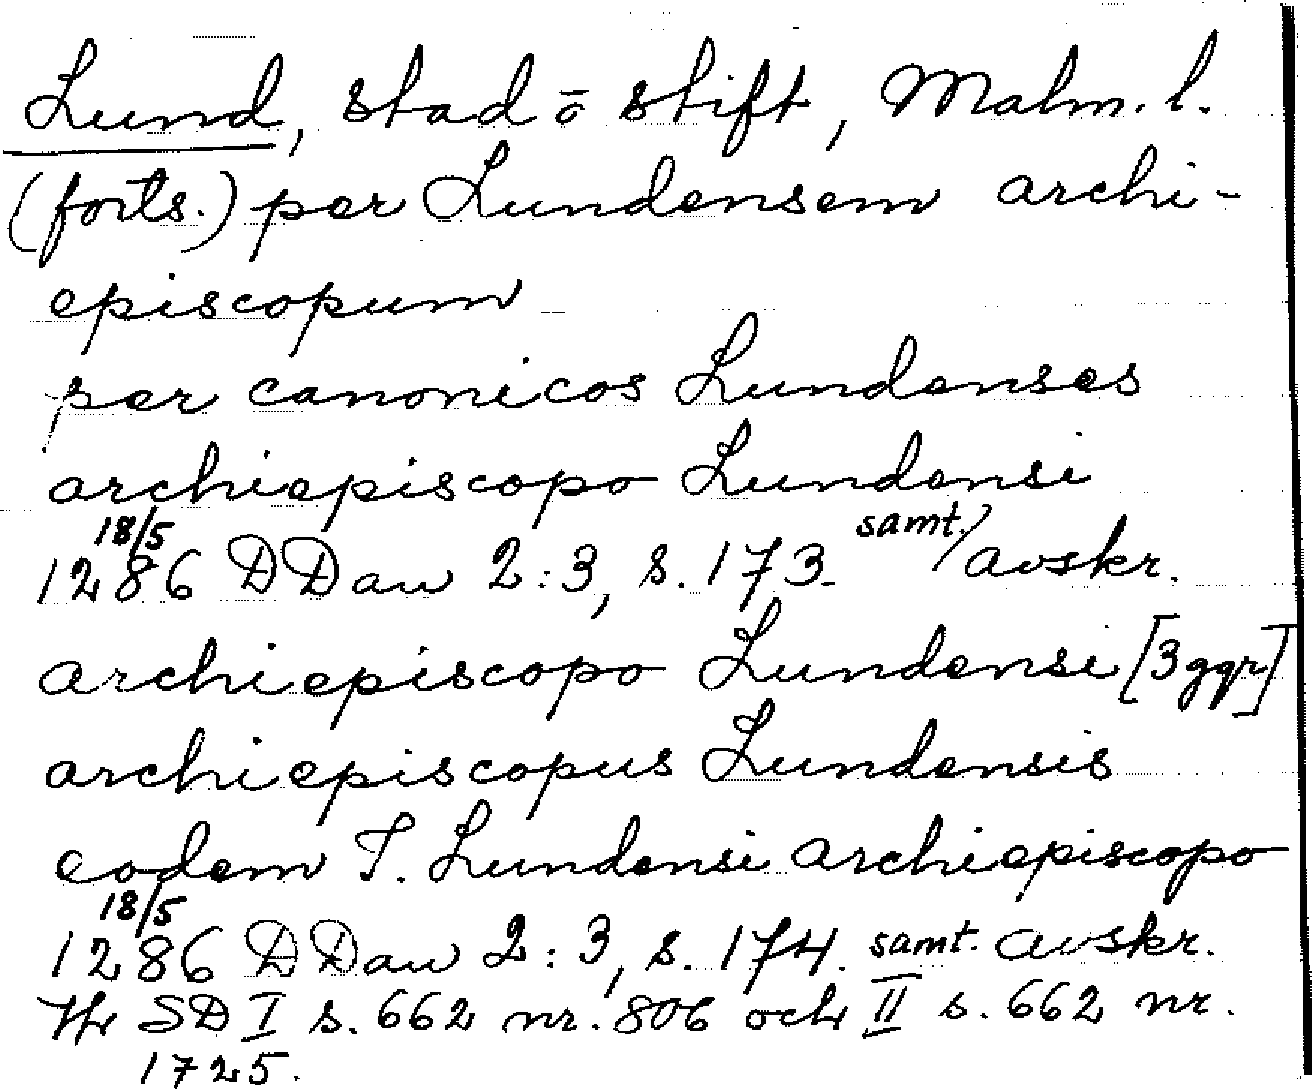 Lund, stad ō stift, Malm. l.
(forts.) per Lundensem archi-
episcopum
per canonicos Lundenses
archiepiscopo Lundensi
18/5 samt.
1286 DDan 2:3, s. 173. avskr.
archiepiscopo Lundensi [3 ggr]
archiepiscopus Lundensis
eodem T. Lundensi archiepiscopo
18/5
1286 DDan 2:3, s. 174. samt. avskr.
Jfr SD I s. 662 nr. 806 och II s. 662 nr.
1725.